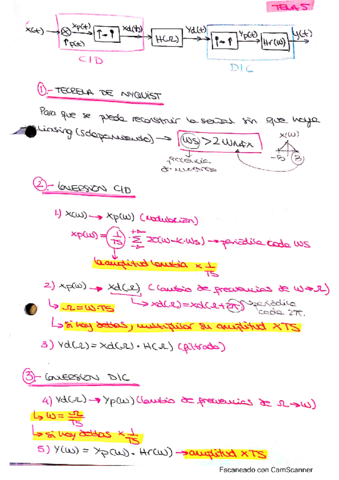 TEMA 5
x(t) xp(t) xd(t) H(Ω) yd(t) yp(t) Hr(ω) y(t)
↑p(t)
CID
DIC
①.- TEOREMA DE NYQUIST
Para que se pueda reconstruir la señal sin que haya
aliasing (solapamiento) → ωs > 2ωmáx
X(ω)
-B B
frecuencia
de muestreo
②.- CONVERSIÓN CID
1) X(ω) → Xp(ω) (modulación)
Xp(ω) = 1/TS · Σ X(ω-kωs) → periódica cada ωs
la amplitud cambia × 1/TS
2) Xp(ω) → Xd(Ω) (cambio de frecuencias de ω→Ω)
↳ Ω = ω·TS ↳ Xd(Ω) = Xd(Ω+2π) → periódica cada 2π.
↳ si hay deltas, multiplicar su amplitud × TS
3) Yd(Ω) = Xd(Ω) · H(Ω) (filtrado)
③.- CONVERSIÓN DIC
4) Yd(Ω) → Yp(ω) (cambio de frecuencias de Ω→ω)
↳ ω = Ω/TS
↳ si hay deltas × 1/TS
5) Y(ω) = Yp(ω) · Hr(ω) → amplitud × TS
Escaneado con CamScanner